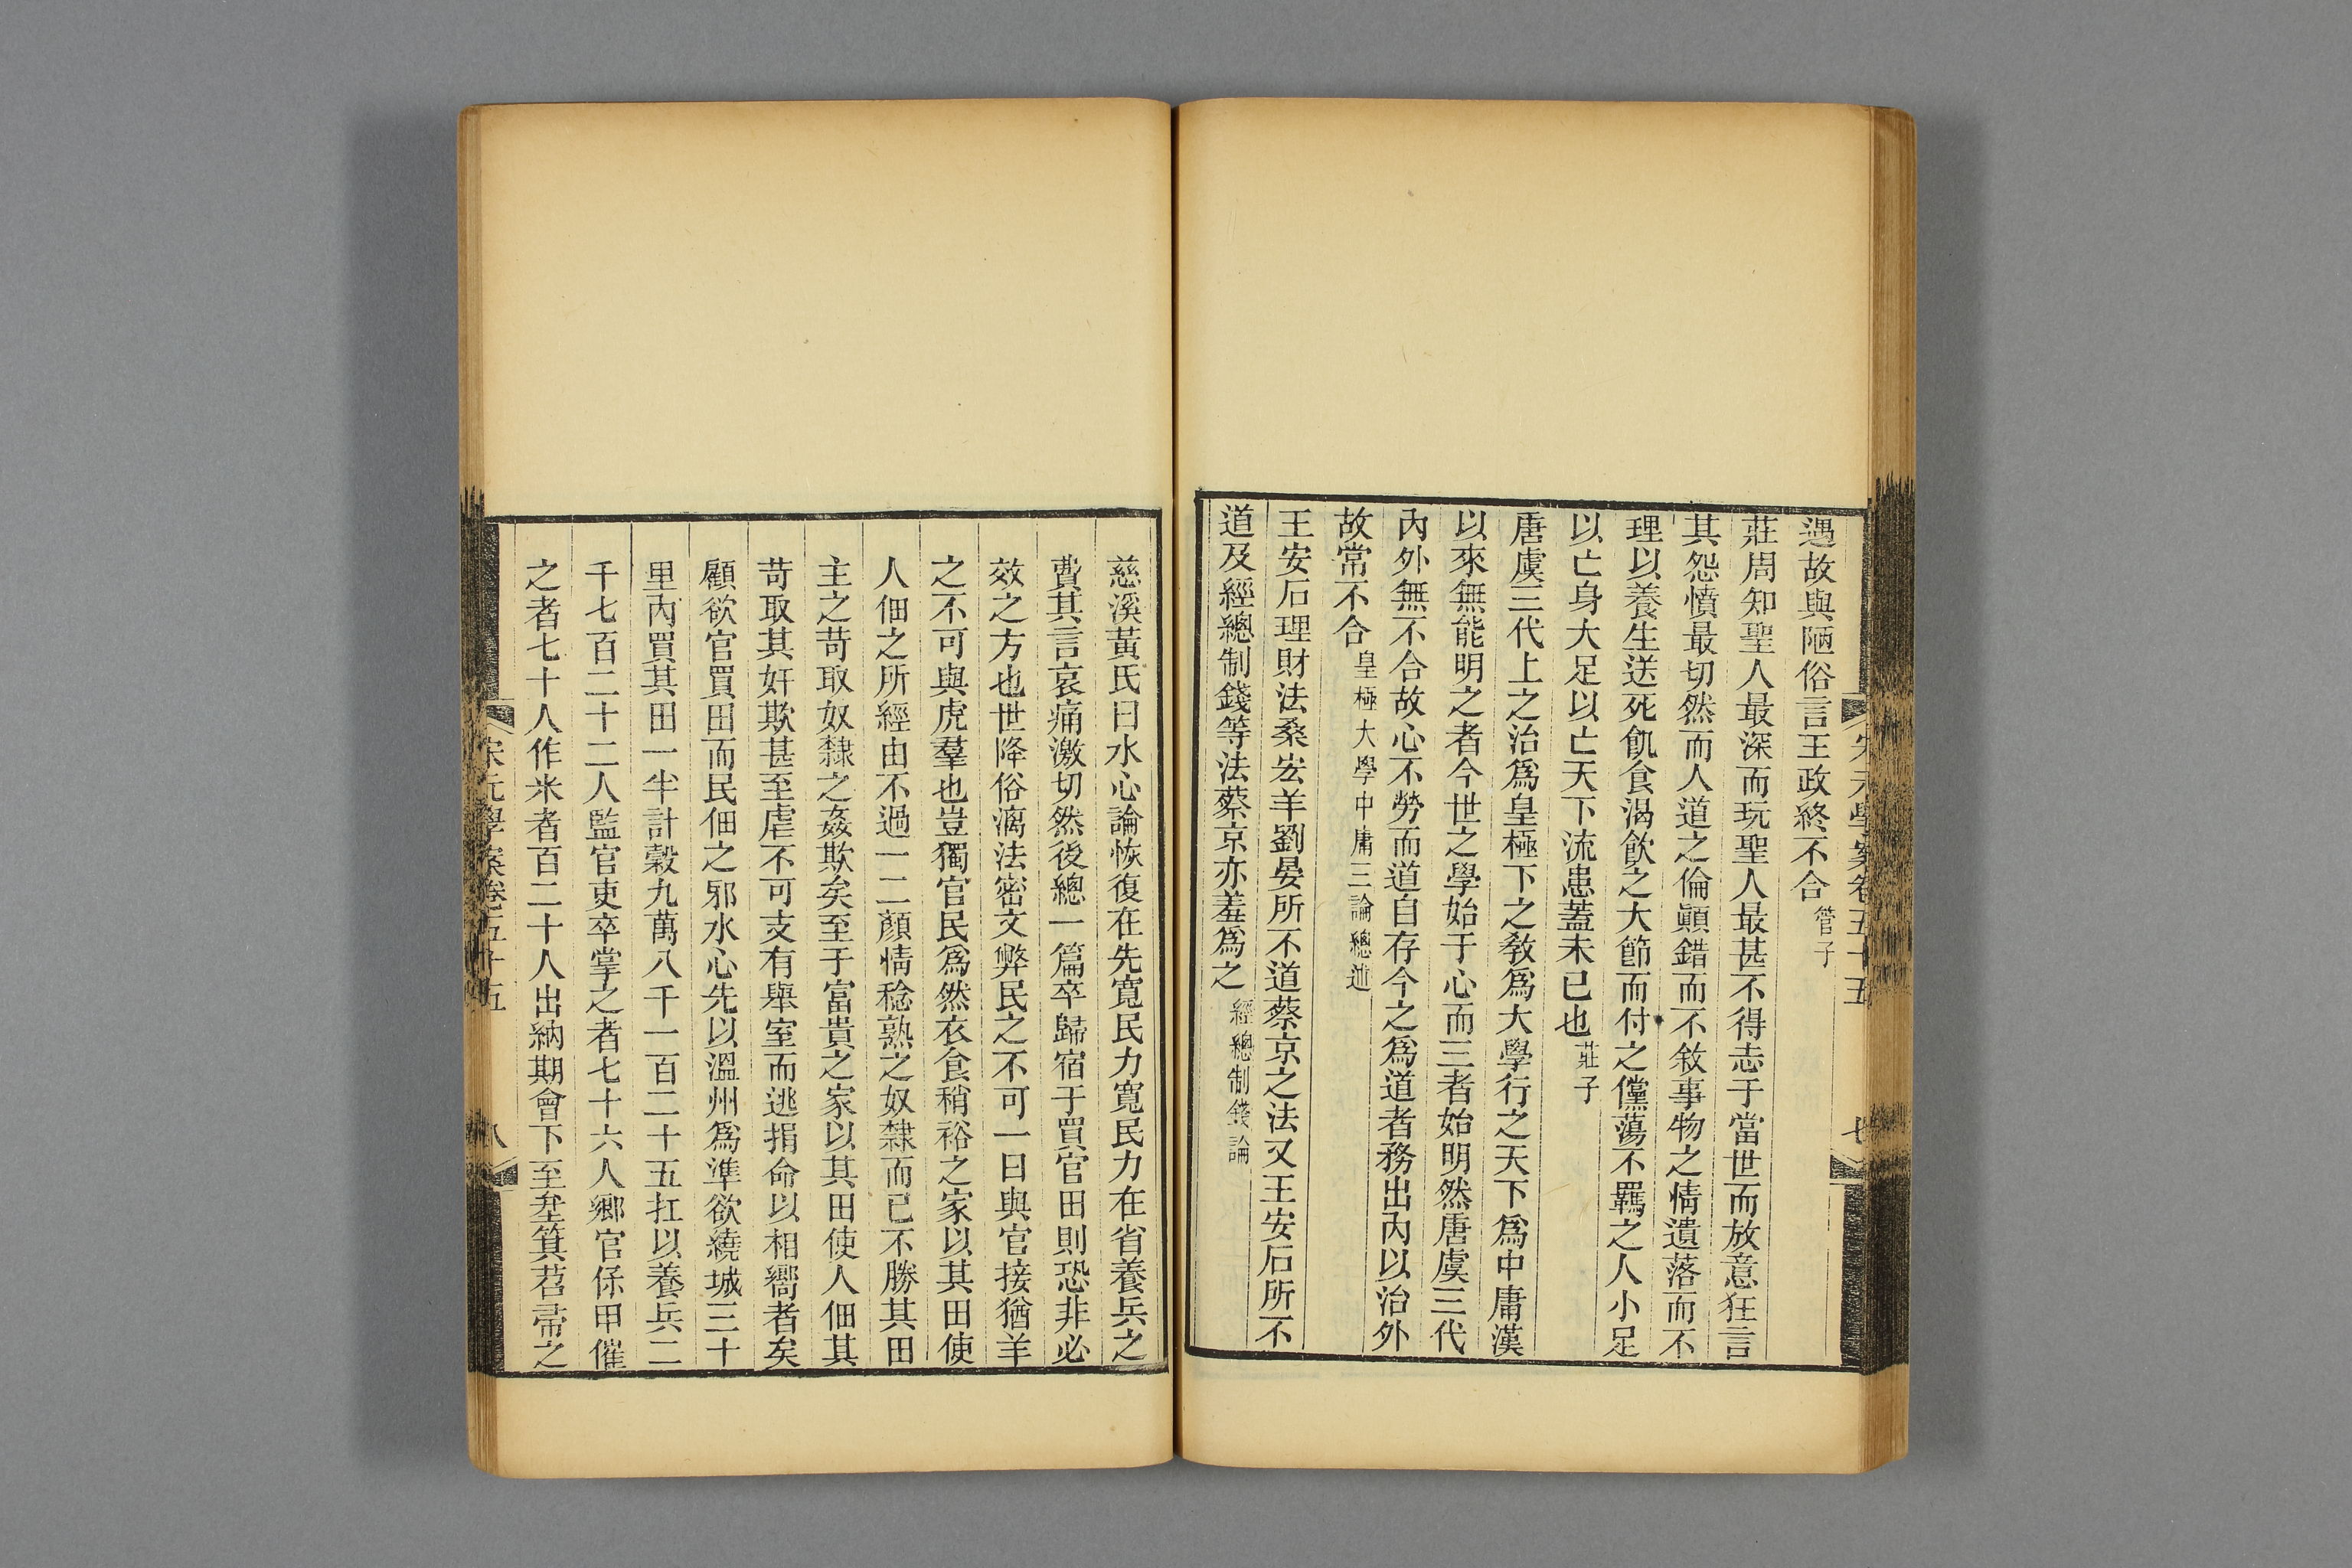 遇故與陋俗言王政終不合管子
莊周知聖人最深而玩聖人最甚不得志于當世而放意狂言
其怨憤最切然而人道之倫顚錯而不敘事物之情遺落而不
理以養生送死飢食渴飮之大節而付之儻蕩不羈之人小足
以亡身大足以亡天下流患蓋未已也莊子
唐虞三代上之治爲皇極下之敎爲大學行之天下爲中庸漢
以來無能明之者今世之學始于心而三者始明然唐虞三代
內外無不合故心不勞而道自存今之爲道者務出內以治外
故常不合皇極大學中庸三論總述
王安石理財法桑宏羊劉晏所不道蔡京之法又王安石所不
道及經總制錢等法蔡京亦羞爲之經總制錢論
宋元學案卷五十五
七
慈溪黃氏曰水心論恢復在先寬民力寬民力在省養兵之
費其言哀痛激切然後總一篇卒歸宿于買官田則恐非必
效之方也世降俗漓法密文弊民之不可一日與官接猶羊
之不可與虎羣也豈獨官民爲然衣食稍裕之家以其田使
人佃之所經由不過一二顏情稔熟之奴隸而已不勝其田
主之苛取奴隸之姦欺矣至于富貴之家以其田使人佃其
苛取其奸欺甚至虐不可支有舉室而逃捐命以相嚮者矣
顧欲官買田而民佃之邪水心先以溫州爲準欲繞城三十
里內買其田一半計穀九萬八千一百二十五扛以養兵二
千七百二十二人監官吏卒掌之者七十六人鄉官保甲催
之者七十人作米者百二十人出納期會下至坌箕苕帚之
宋元學案卷五十五
八